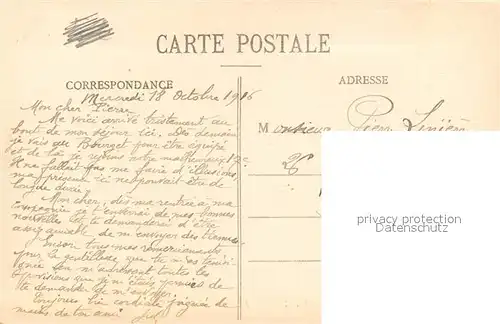 CARTE POSTALE
CORRESPONDANCE
ADRESSE
Mercredi 18 Octobre 1916
Mon cher Pierre
Me voici arrivé tristement au
bout de mon séjour ici. Dès demain
je vais au Bourget pour être équipé
et de là je rejoins notre
Il ne fallait pas me faire d'illusions
ma présence ici ne pouvait être de
longue durée.
Mon cher, dès ma rentrée à ma
compagnie je t'enverrai de mes bonnes
nouvelles et te demanderai d'être
assez aimable de m'envoyer des
tous mes remerciements
pour la gentillesse que tu m'as témoi-
gnée en m'adressant toutes les
provisions que je m'étais permis de
te demander de m'envoyer
Toujours bien cordiale poignée de
mains de ton ami
Monsieur Pierre
privacy protection
Datenschutz